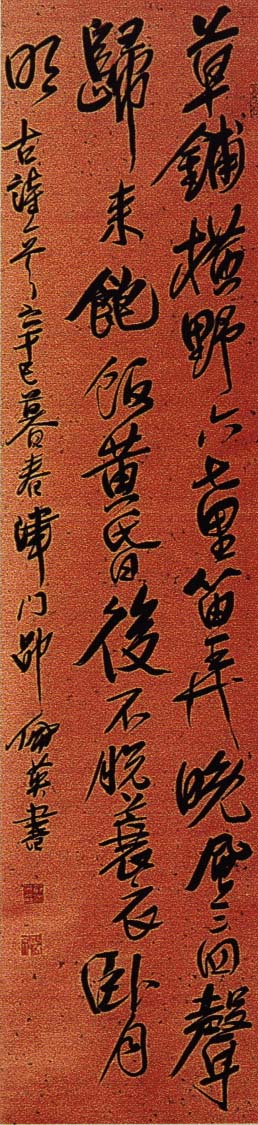 草鋪橫野六七里笛弄晚風三四聲
歸來飽飯黃昏後不脫蓑衣臥月
明 古詩一首辛巳暮春津門邵佩英書